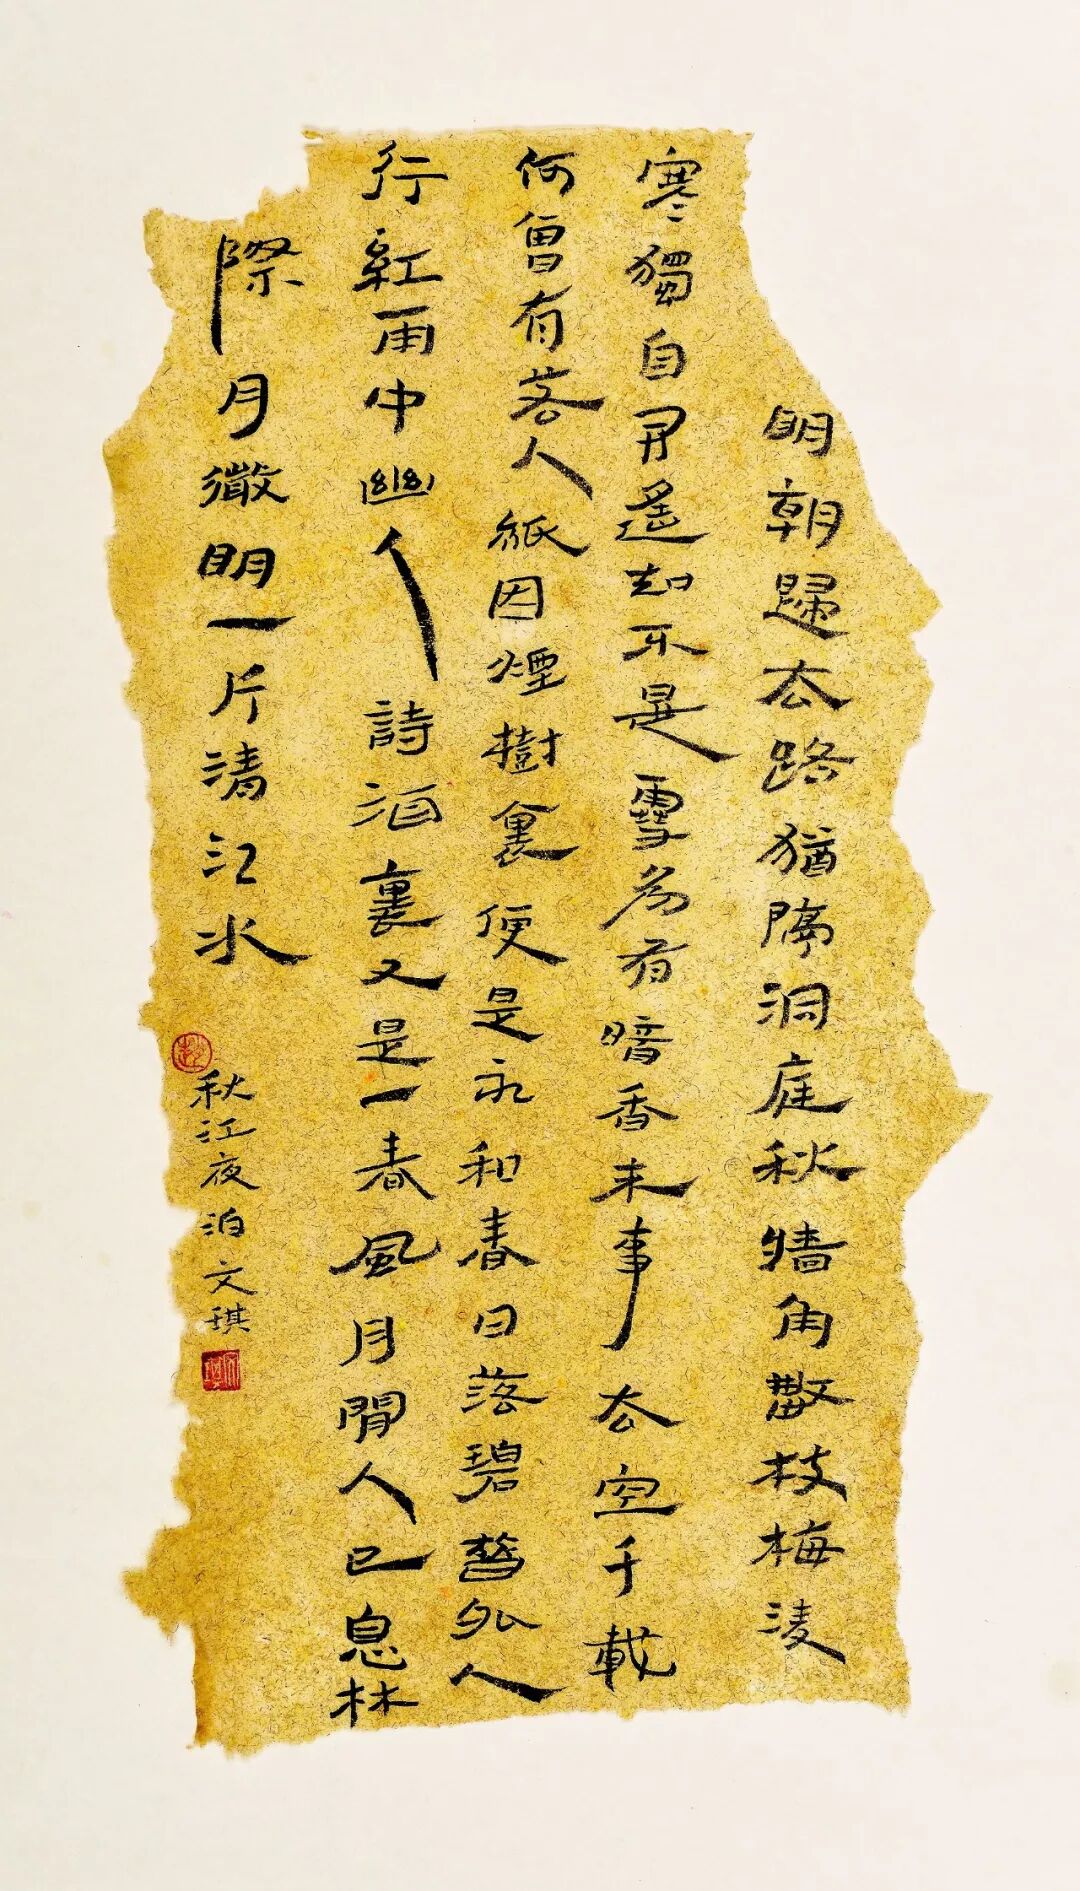 明朝歸去路猶隔洞庭秋牆角數枝梅淩
寒獨自開遙知不是雪為有暗香來事去空千載
何曾有人紙因煙樹裏便是永和春日落碧簪外人
行紅雨中幽人詩酒裏又是一春風舟閒人已息林
際月微明一片清江水
秋江夜泊文琪